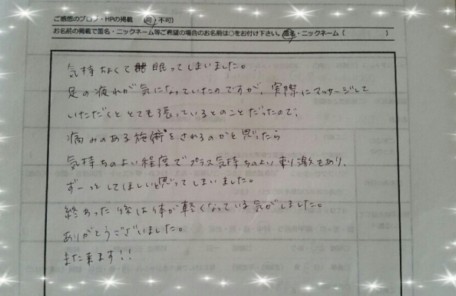 ご感想のブログ・HPの掲載 可・不可
お名前の掲載で匿名・ニックネーム等ご希望の場合のお名前は○をお付け下さい。匿名・ニックネーム（　　　）
気持ちよくて眠ってしまいました。
足の疲れが気になっていたのですが、実際にマッサージして
いただくととても
痛みのある施術をされるのかと思ったら
気持ちのよい程度でプラス気持ちのよい刺激もあり、
ボーっとしてほしい思ってしまいました。
終わった後は体が軽くなっている気がしました。
ありがとうございました。
また来ます！！